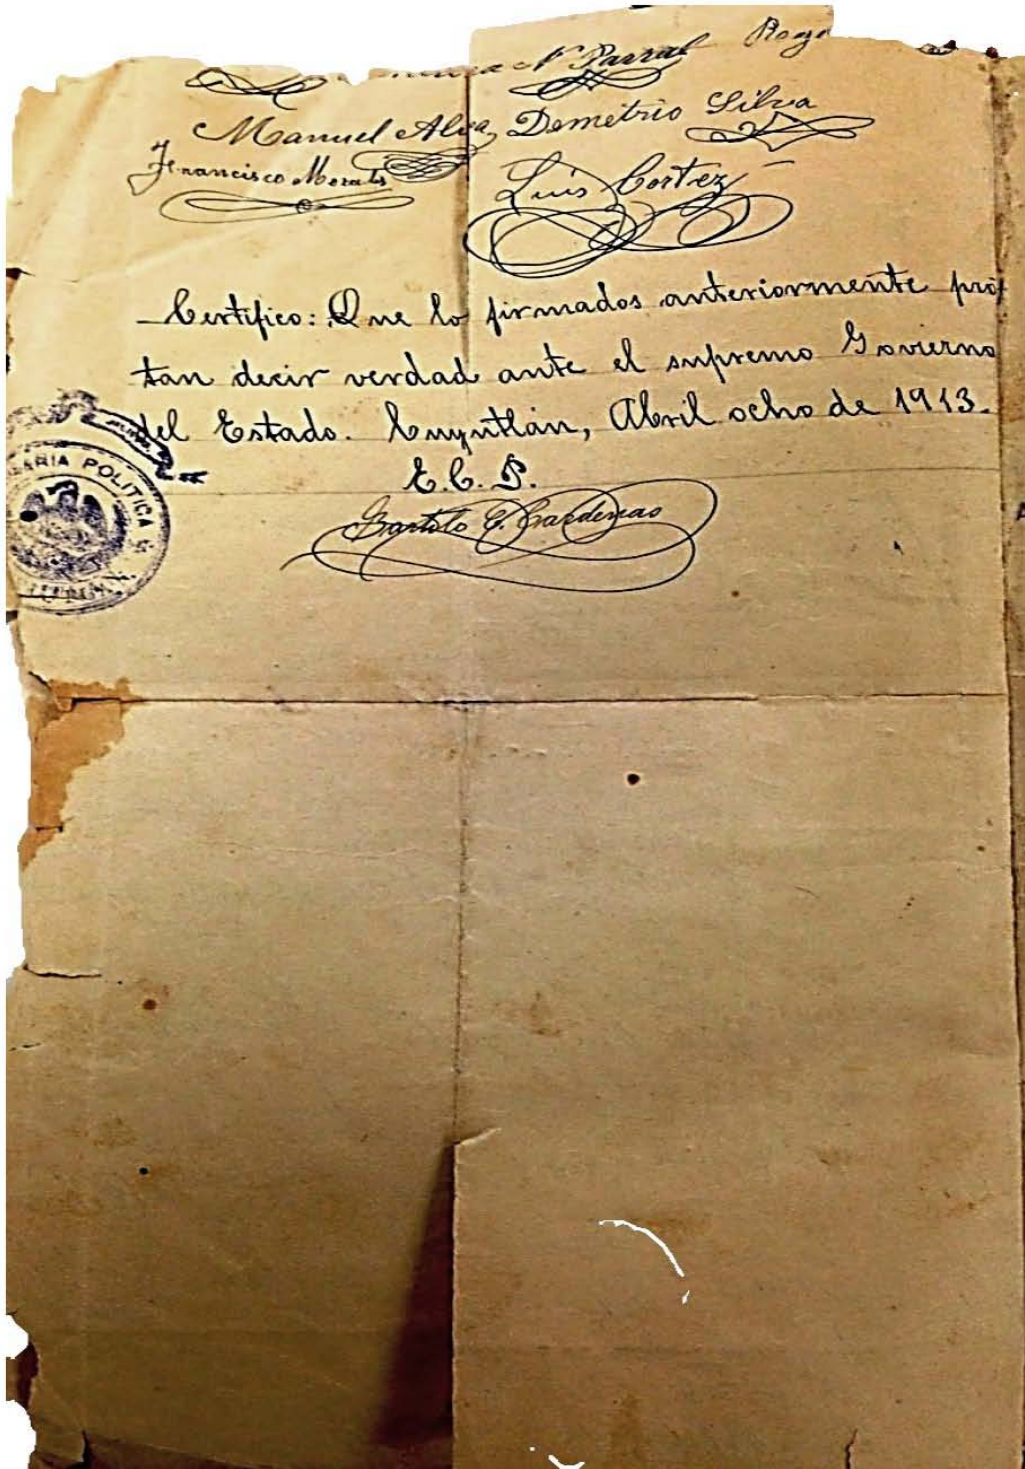 Parral
Manuel Alva, Demetrio Silva
Francisco Morales
Luis Cortez
Certifico: Que lo firmados anteriormente pro
tan decir verdad ante el supremo Govierno
del Estado. Cuyutlán, Abril ocho de 1913.
E. C. P.
Bartolo C. Cardenas
ARIA POLITICA